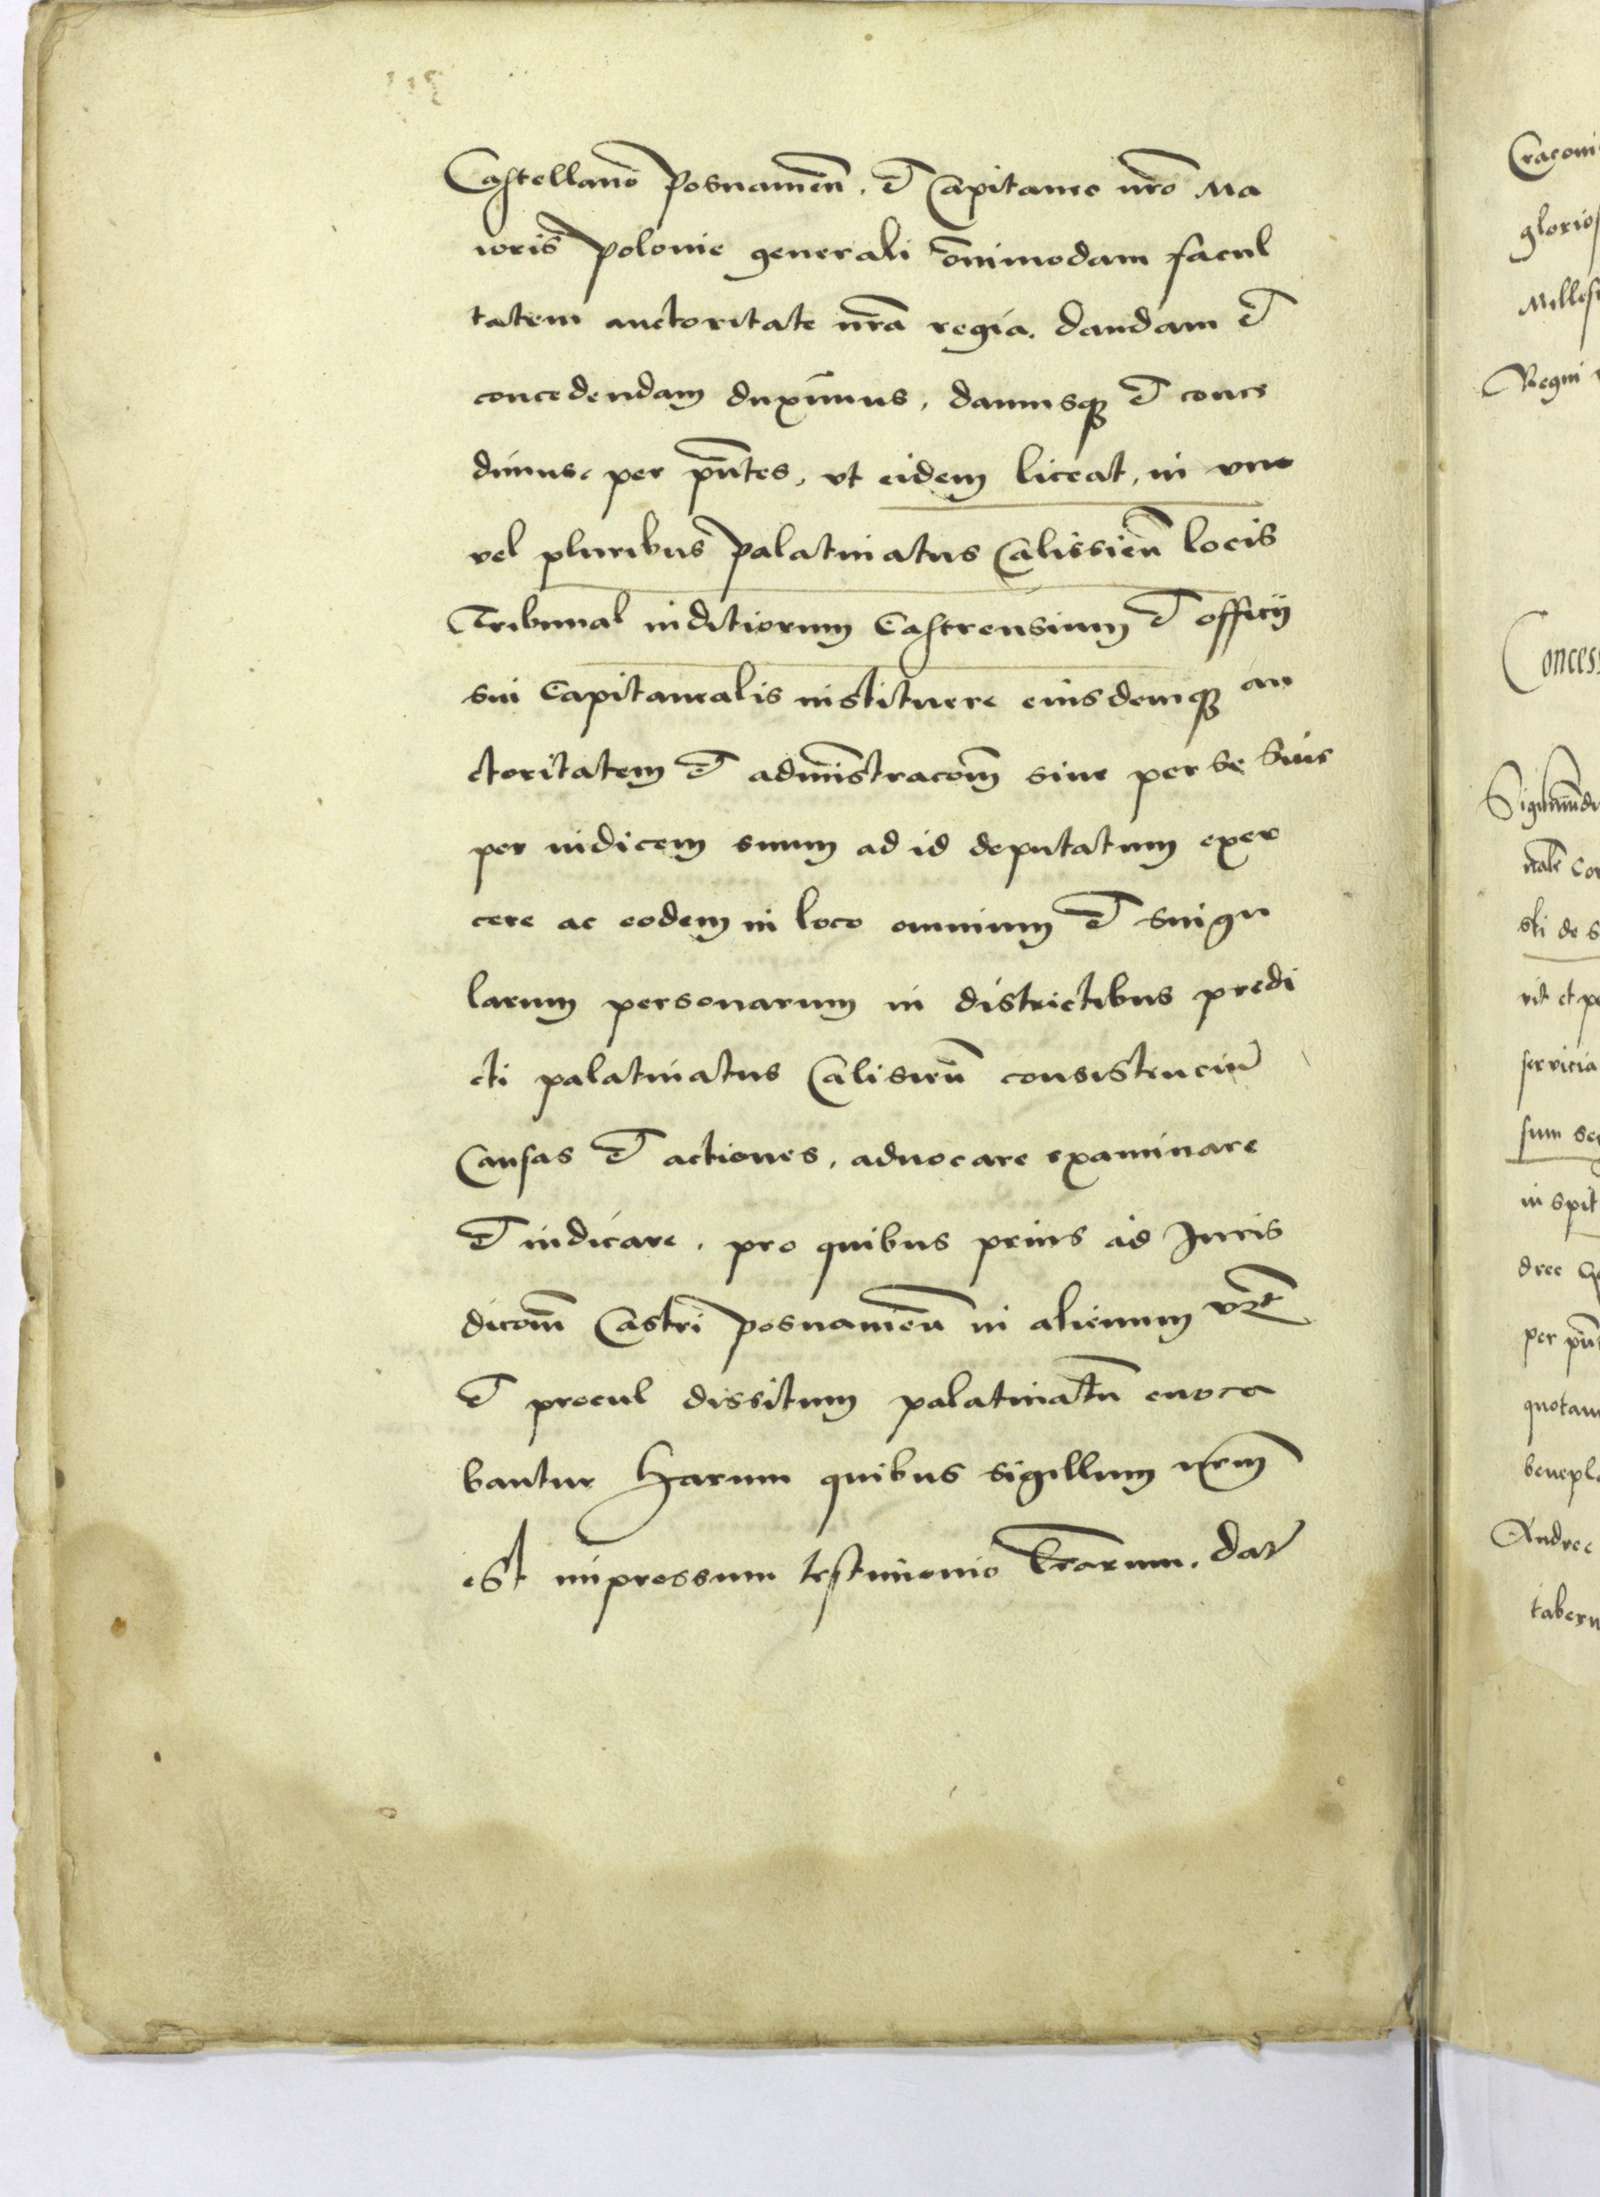 Castellano Posnanien̄. et Capitaneo nr̄o Ma
ioris Polonie generali om̄nimodam facul
tatem auctoritate nr̄a regia. dandam et
concedendam duximus, damusq3 et conce
dimus per pn̄tes, vt eidem liceat, in vno
vel pluribus Palatinatus Calissien̄ locis
Tribunal iuditiorum Castrensium et officij
sui Capitanealis instituere eiusdemq3 au
ctoritatem et admīstracōm siue per se siue
per iudicem suum ad id deputatum exer
cere ac eodem in loco omnium et singu
larum personarum in districtibus predi
cti palatinatus Calisien̄ consistenciū
Causas et actiones, aduocare examinare
et iudicare, pro quibus prius ad Juris
dicōm Castri Posnanien̄ in alienum
et procul dissitum palatinatū euoca
bantur Harum quibus sigillum nr̄m
est impressum testimonio lr̄arum. Dat̄
Craconi
glorios
Milles
Regni
Conces
Sigismūd
sti de s
rit et pe
seruicia
sum se
in spit
dree
per pn̄
quotan
benepl
Andree
tabern